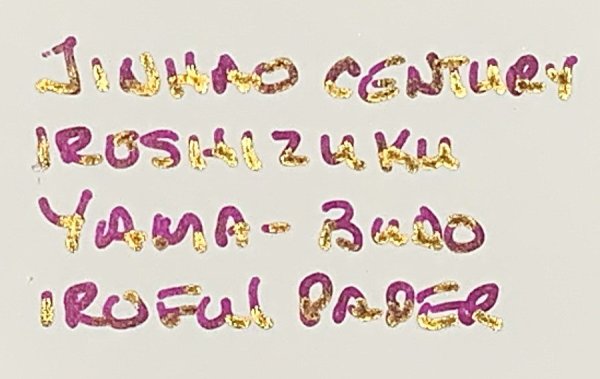 JINHAO CENTURY
IROSHIZUKU
YAMA-BUDO
IROFUL PAPER